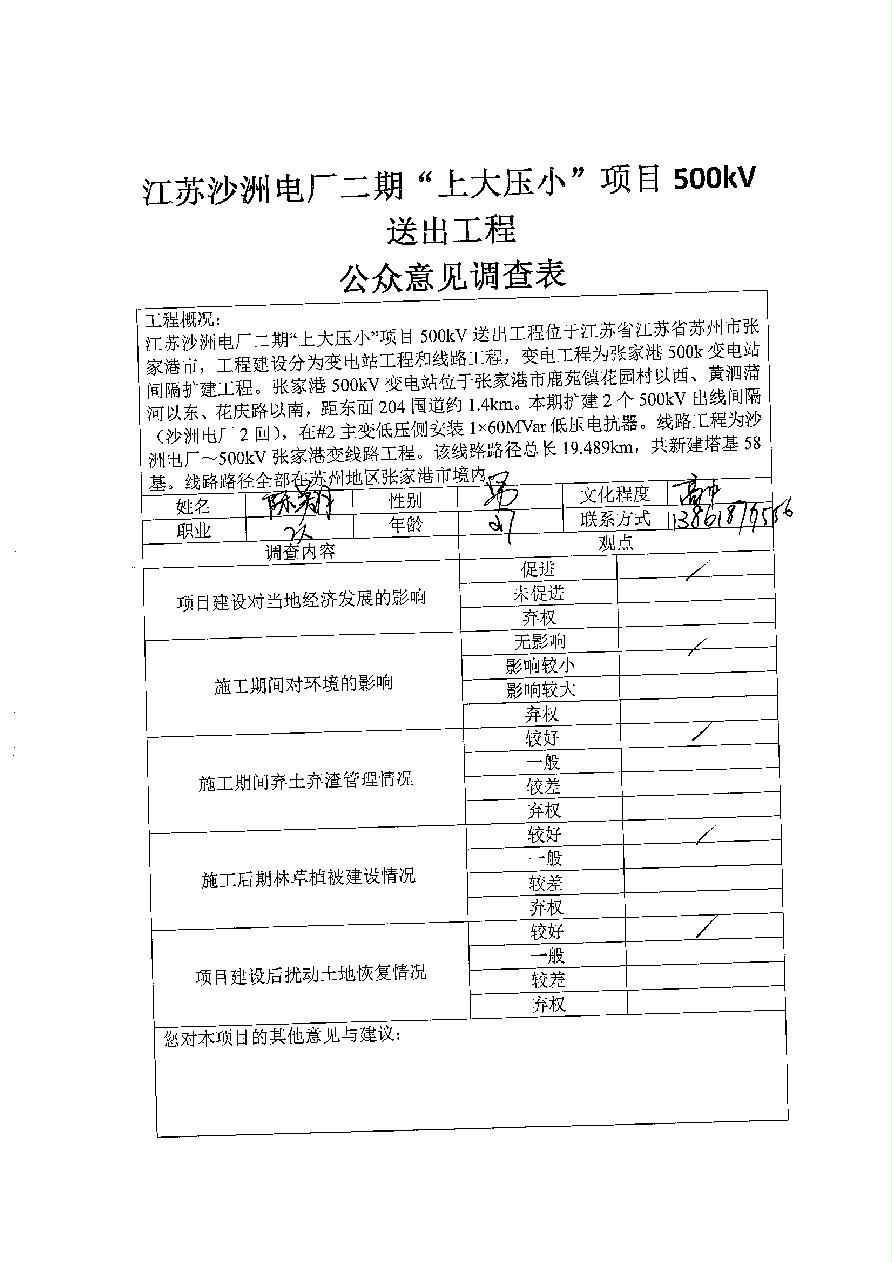 江苏沙洲电厂二期“上大压小”项目 500kV
送出工程
公众意见调查表
工程概况:
江苏沙洲电厂二期“上大压小”项目 500kV 送出工程位于江苏省江苏省苏州市张
家港市，工程建设分为变电站工程和线路工程，变电工程为张家港 500k 变电站
间隔扩建工程。张家港 500kV 变电站位于张家港市鹿苑镇花园村以西、黄泗蒲
河以东、花庆路以南，距东面 204 国道约 1.4km。本期扩建 2 个 500kV 出线间隔
（沙洲电厂 2 回），在#2 主变低压侧安装 1×60MVar 低压电抗器。线路工程为沙
洲电厂～500kV 张家港变线路工程。该线路路径总长 19.489km，共新建塔基 58
基。线路路径全部在苏州地区张家港市境内。
姓名 性别 男 文化程度 高中
职业 年龄 27 联系方式
调查内容 观点
项目建设对当地经济发展的影响
促进 /
未促进
弃权
施工期间对环境的影响
无影响 /
影响较小
影响较大
弃权
施工期间弃土弃渣管理情况
较好 /
一般
较差
弃权
施工后期林草植被建设情况
较好 /
一般
较差
弃权
项目建设后扰动土地恢复情况
较好 /
一般
较差
弃权
您对本项目的其他意见与建议：